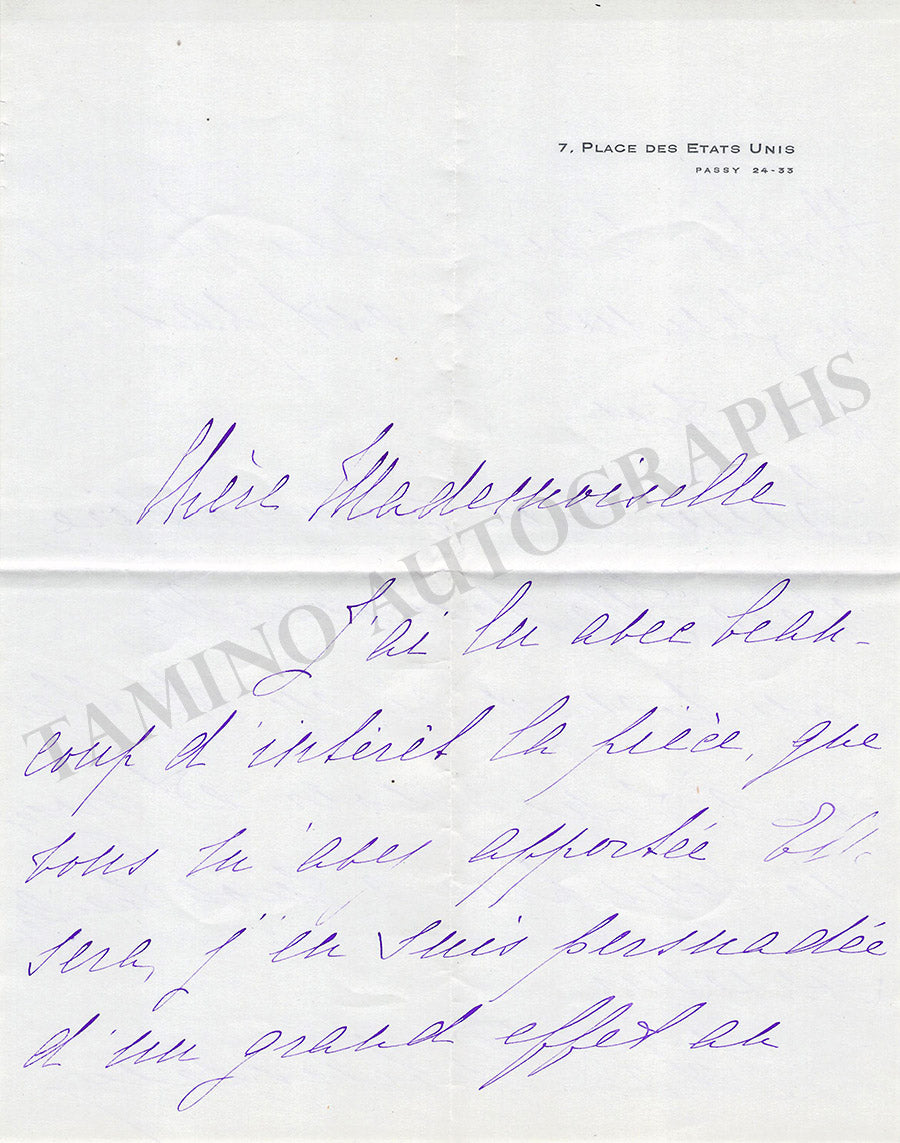 7, PLACE DES ETATS UNIS
PASSY 24-33
Chère Mademoiselle
J'ai lu avec beau-
coup d'intérêt la pièce, que
vous m'avez apportée Elle
sera, j'en suis persuadée
d'un grand effet au
TAMINO AUTOGRAPHS